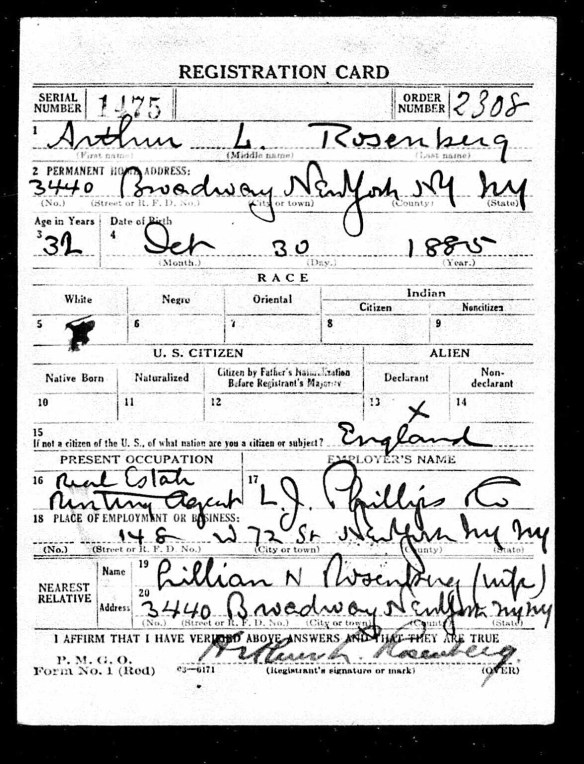 REGISTRATION CARD
SERIAL NUMBER 1475 ORDER NUMBER 2308
1 Arthur L. Rosenberg
(First name) (Middle name) (Last name)
2 PERMANENT HOME ADDRESS:
3440 Broadway New York NY NY
(No.) (Street or R. F. D. No.) (City or town) (County) (State)
Age in Years Date of Birth
3 32 4 Oct 30 1885
(Month.) (Day.) (Year.)
RACE
White Negro Oriental Indian
Citizen Noncitizen
5 6 7 8 9
U. S. CITIZEN ALIEN
Native Born Naturalized Citizen by Father's Naturalization Before Registrant's Majority Declarant Non-declarant
10 11 12 13 X 14
15
If not a citizen of the U. S., of what nation are you a citizen or subject? England
PRESENT OCCUPATION EMPLOYER'S NAME
16 Real Estate 17
Renting Agent L. J. Phillips Co
18 PLACE OF EMPLOYMENT OR BUSINESS:
148 W 72 St New York NY NY
(No.) (Street or R. F. D. No.) (City or town) (County) (State)
NEAREST RELATIVE Name 19 Lillian N Rosenberg (wife)
20
Address 3440 Broadway New York NY NY
(No.) (Street or R. F. D. No.) (City or town) (County) (State)
I AFFIRM THAT I HAVE VERIFIED ABOVE ANSWERS AND THAT THEY ARE TRUE
P. M. G. O.
Form No. 1 (Red) 03—6171 Arthur L. Rosenberg.
(Registrant's signature or mark) (OVER)